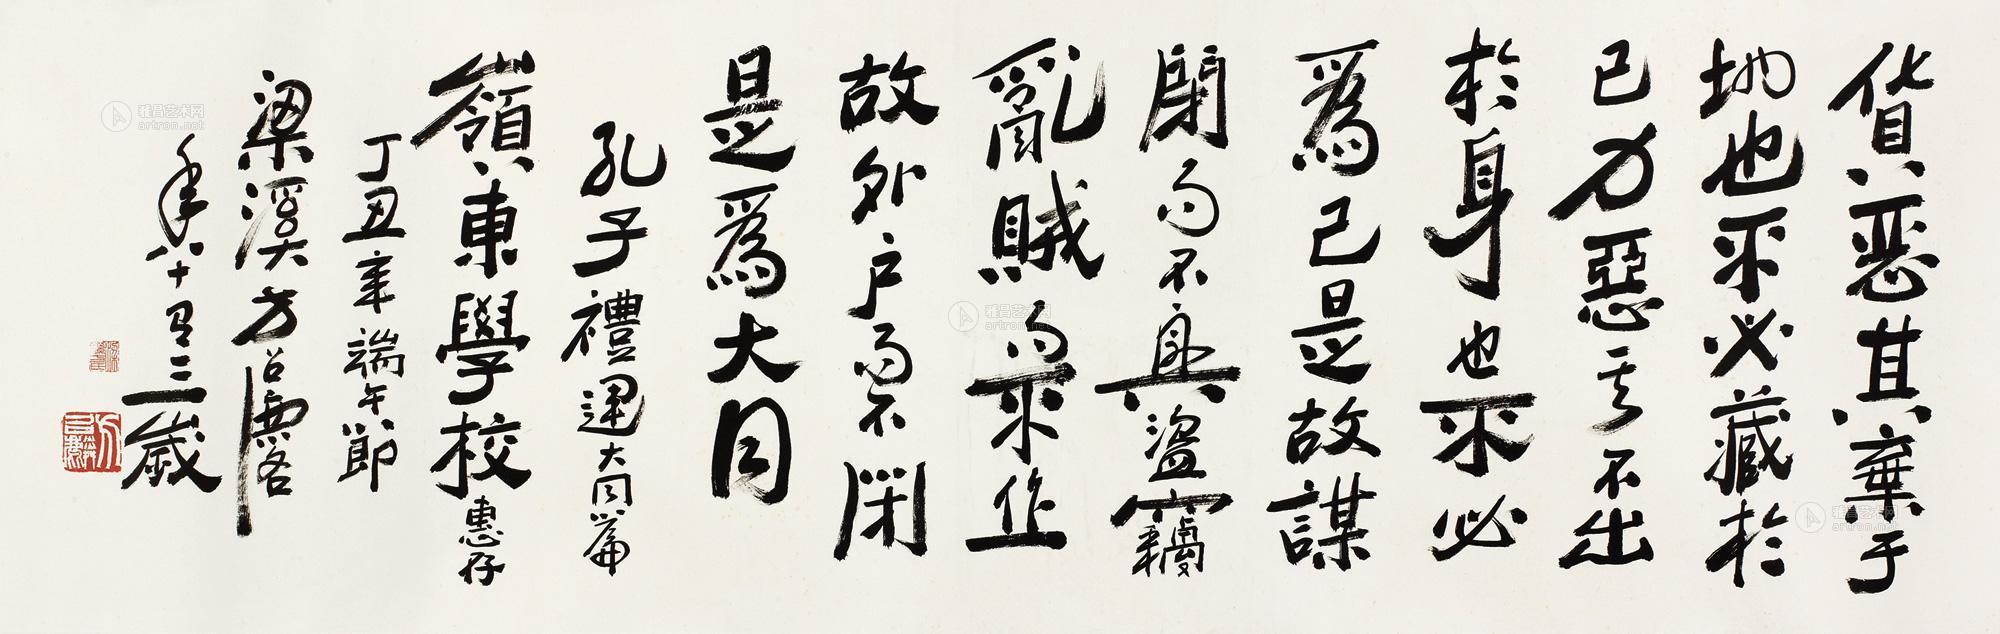 貨惡其棄于
地也不必藏於
己力惡其不出
於身也不必
爲己是故謀
閉而不興盜竊
亂賊而不作
故外户而不閉
是爲大同
孔子禮運大同篇
嶺東學校惠存
丁丑年端午節
梁溪方召麐
年八十有三歲
雅昌艺术网
artron.net
雅昌艺术网
artron.net
雅昌艺术网
artron.net